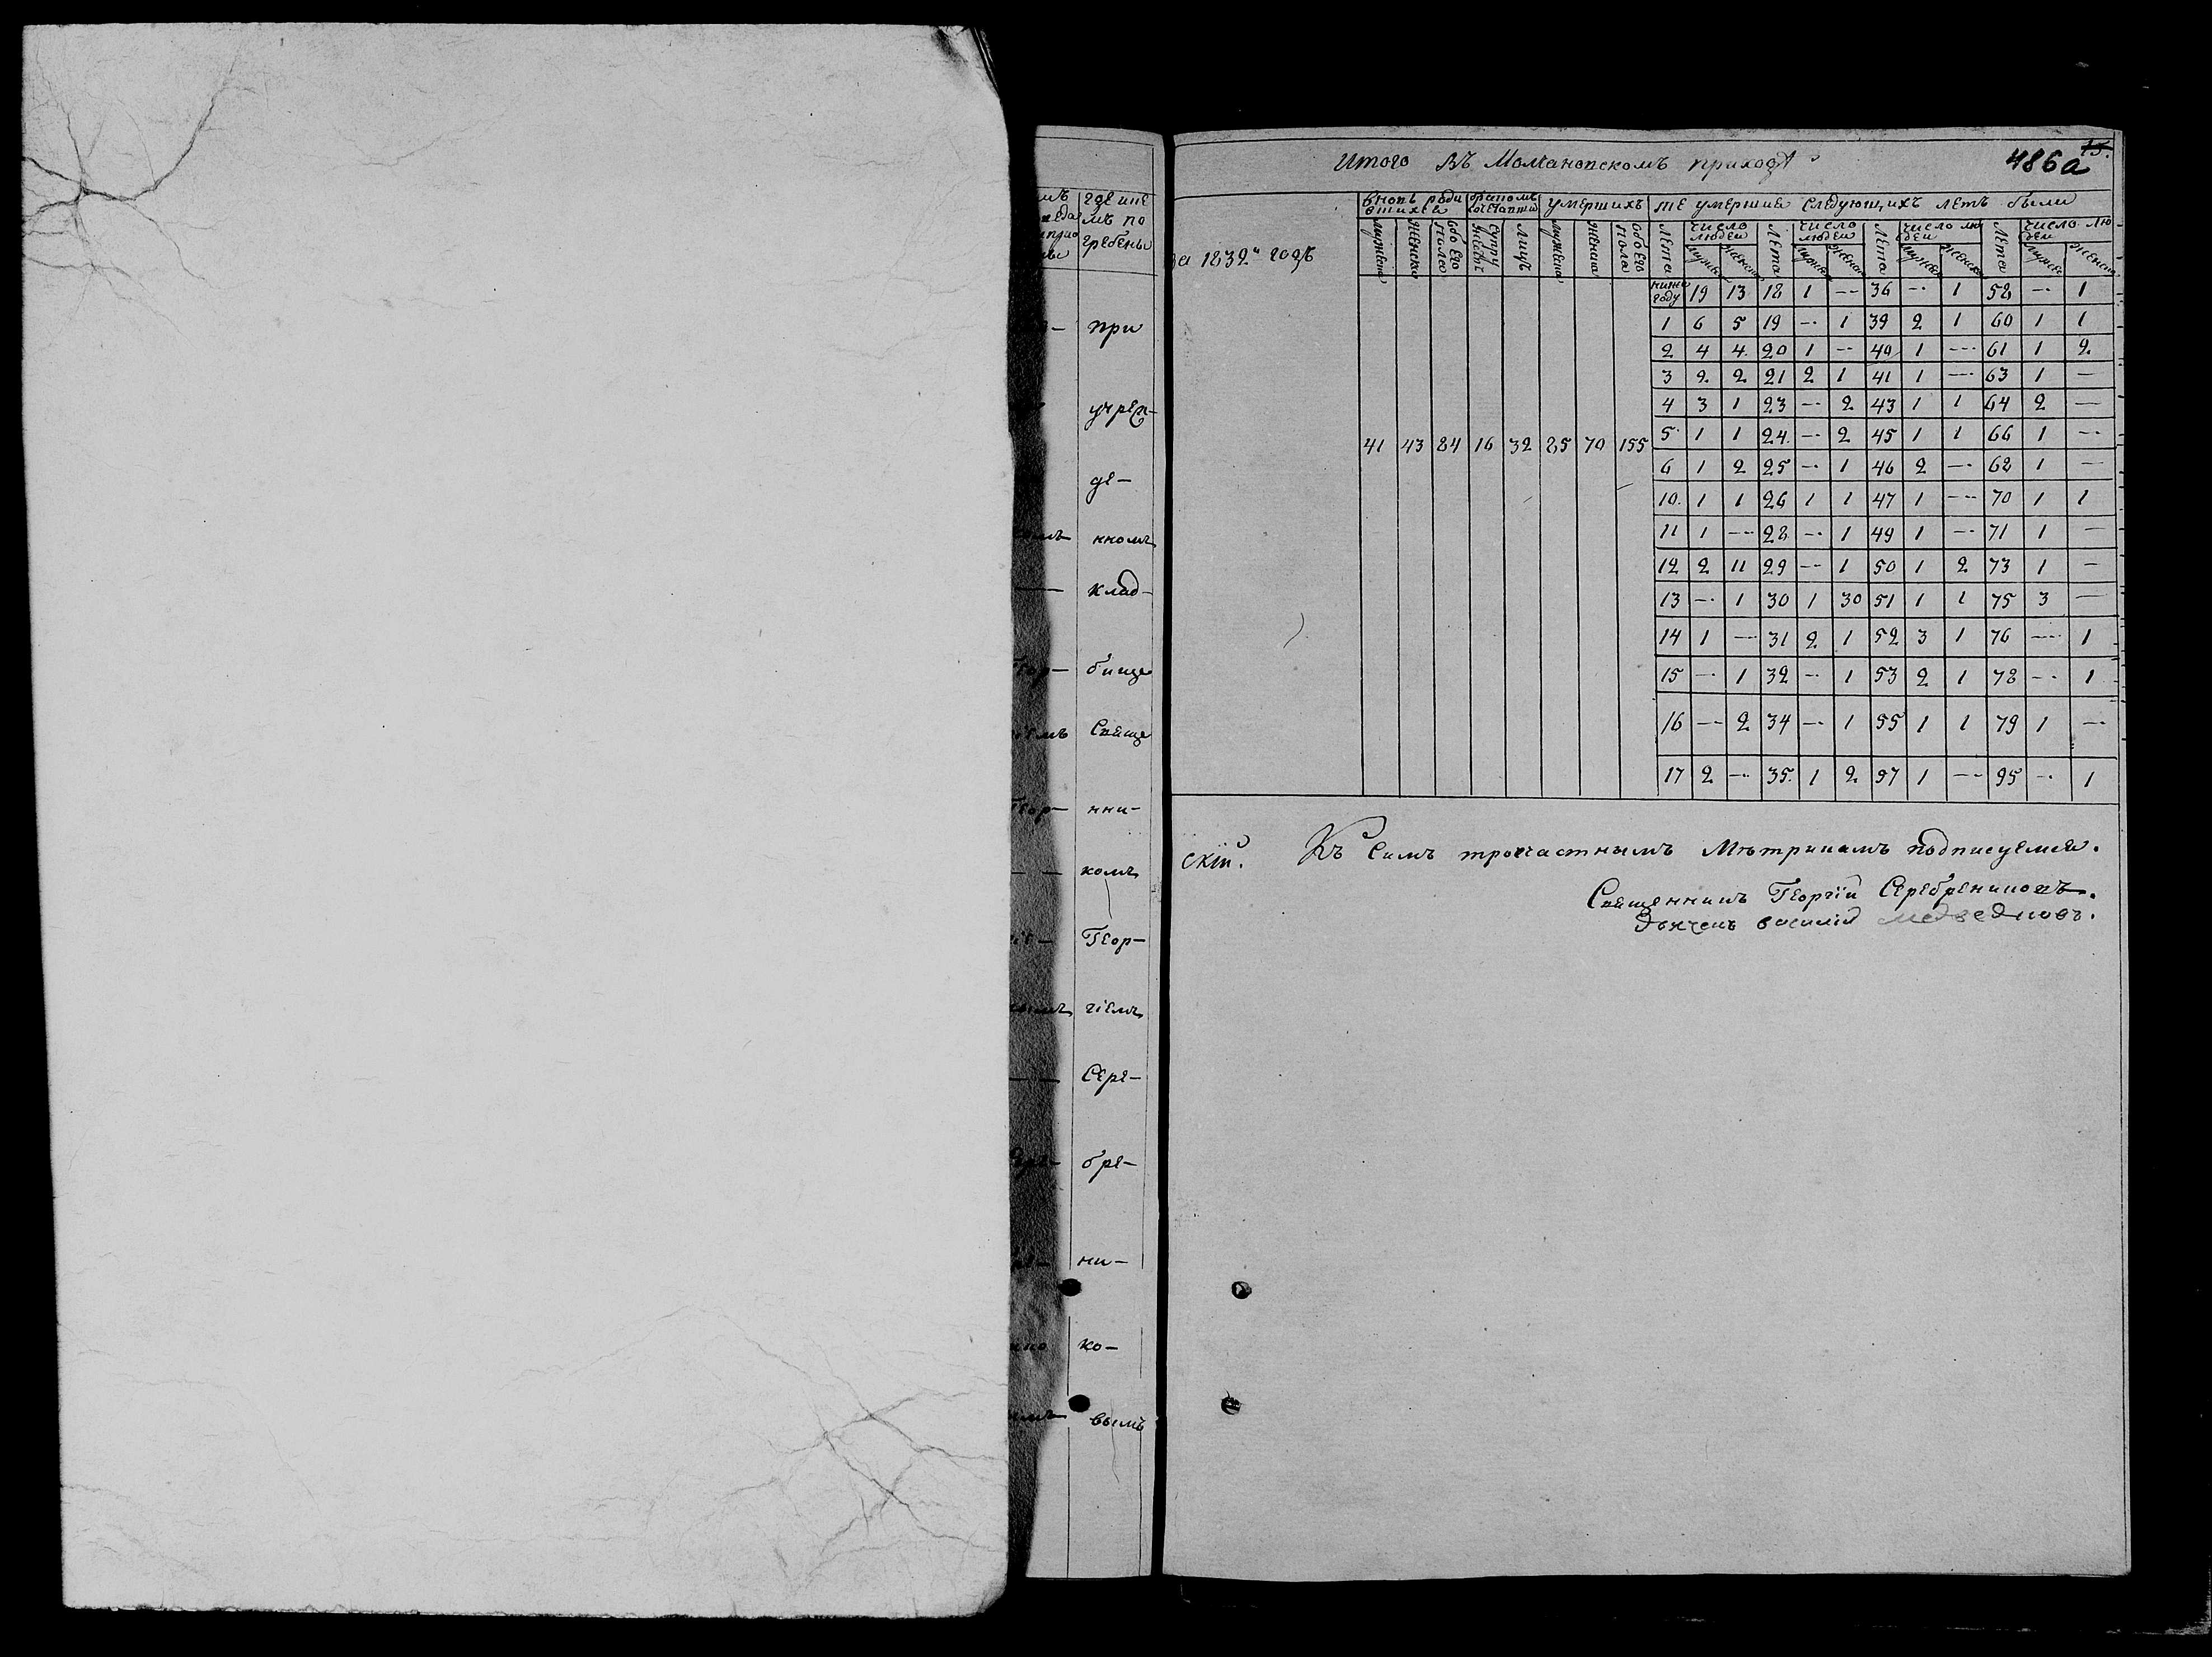 гдѣ и кѣ
мъ по
гребены
при
учреж-
де-
нномъ
клад-
бище
Свяще
нни-
комъ
Геор-
гіемъ
Сере-
бре-
ни-
ко-
вымъ
Итого въ приходѣ
486а
15.
за 1832й годъ
вновь роди вшихся | бракомъ сочетавши | умершихъ | те умершие следующихъ летъ были
мужеска | женска | обоего полов | супружествъ | лицъ | мужеска | женска | обоего пола | лета | число людей | лета | число людей | лета | число людей | лета | число людей
мужск | женска | мужск | женск | мужск | женск | мужск | женска
ниже году | 19 | 13 | 18 | 1 | — | 36 | — | 1 | 58 | — | 1
1 | 6 | 5 | 19 | — | 1 | 39 | 2 | 1 | 60 | 1 | 1
2 | 4 | 4 | 20 | 1 | — | 40 | 1 | — | 61 | 1 | 2
3 | 2 | 2 | 21 | 2 | 1 | 41 | 1 | — | 63 | 1 | —
4 | 3 | 1 | 23 | — | 2 | 43 | 1 | 1 | 64 | 2 | —
41 | 43 | 84 | 16 | 32 | 85 | 70 | 155 | 5 | 1 | 1 | 24 | — | 2 | 45 | 1 | 1 | 66 | 1 | —
6 | 1 | 2 | 25 | — | 1 | 46 | 2 | — | 68 | 1 | —
10 | 1 | 1 | 26 | 1 | 1 | 47 | 1 | — | 70 | 1 | 1
11 | 1 | — | 28 | — | 1 | 49 | 1 | — | 71 | 1 | —
12 | 2 | 11 | 29 | — | 1 | 50 | 1 | 2 | 73 | 1 | —
13 | — | 1 | 30 | 1 | 30 | 51 | 1 | 1 | 75 | 3 | —
14 | 1 | — | 31 | 2 | 1 | 52 | 3 | 1 | 76 | — | 1
15 | — | 1 | 32 | — | 1 | 53 | 2 | 1 | 78 | — | 1
16 | — | 2 | 34 | — | 1 | 55 | 1 | 1 | 79 | 1 | —
17 | 2 | — | 35 | 1 | 2 | 57 | 1 | — | 95 | — | 1
скій. Къ Симъ троечастнымъ Метрикамъ подписуемся.
Священникъ Георгій Серебрениковъ.
Дьячекъ Василій Медведковъ.